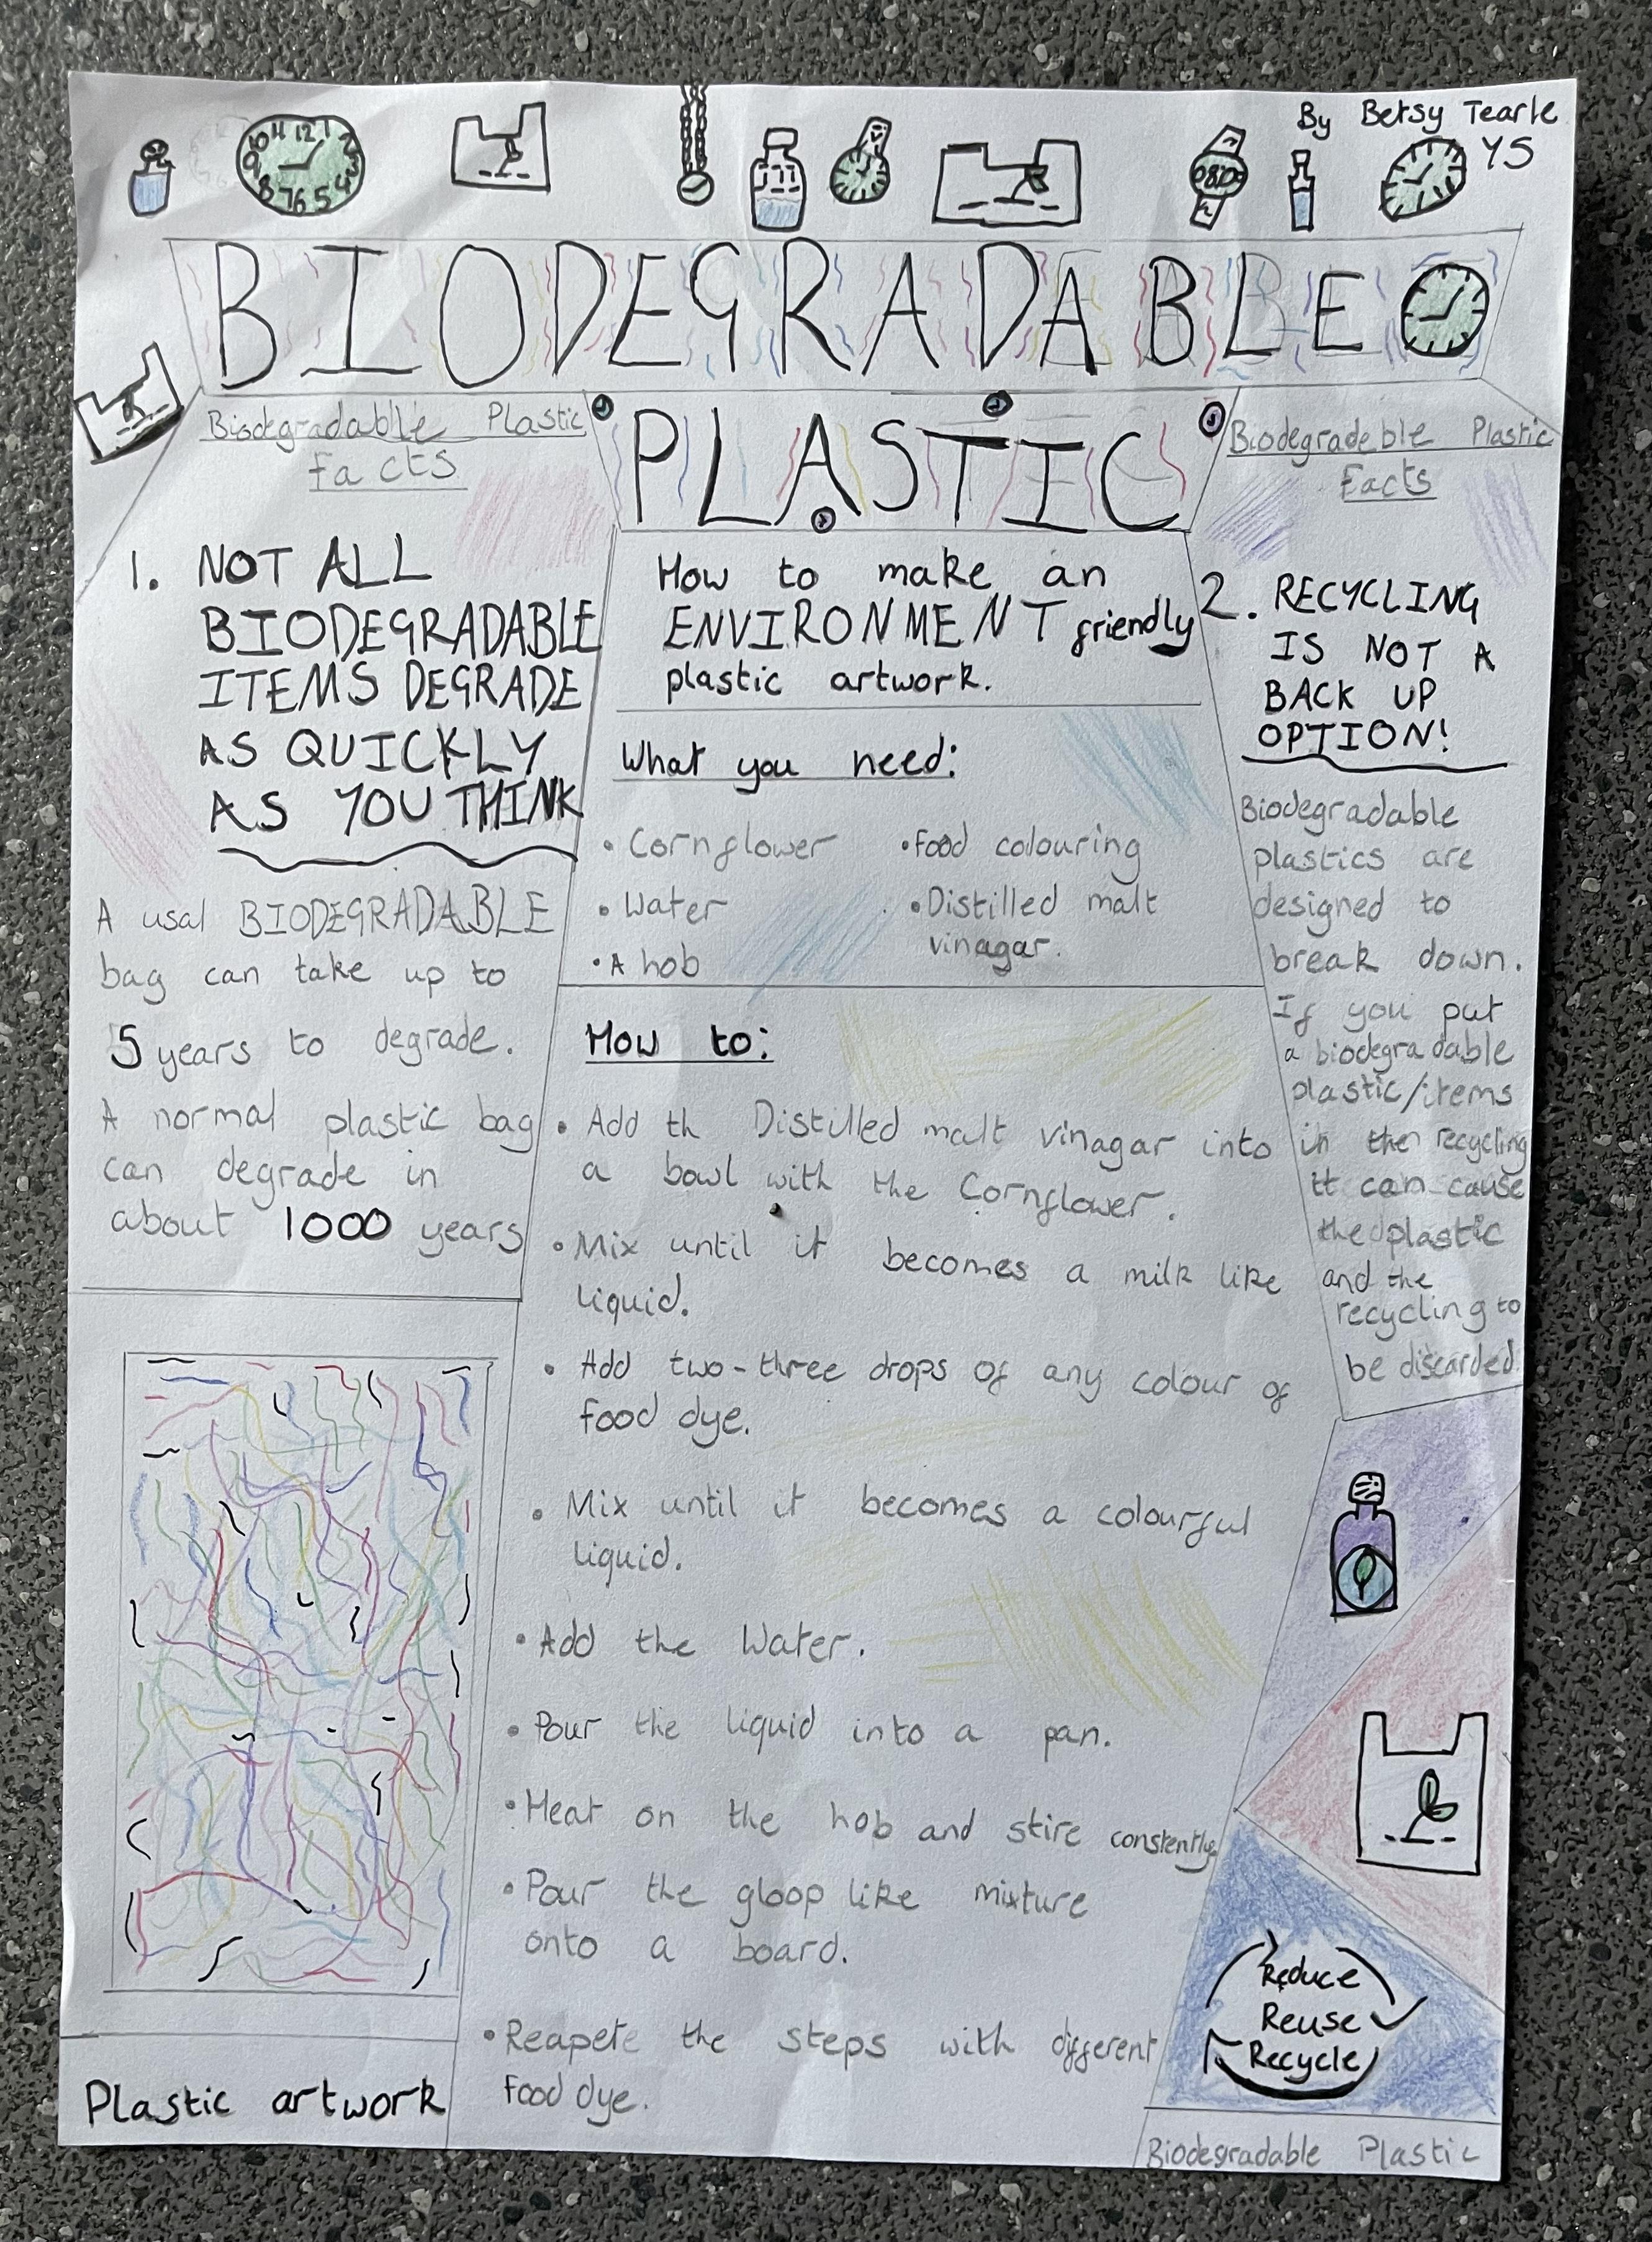 By Betsy Tearle
Y5
BIODEGRADABLE
PLASTIC
Biodegradable Plastic
Facts
1. NOT ALL
BIODEGRADABLE
ITEMS DEGRADE
AS QUICKLY
AS YOU THINK
A usal BIODEGRADABLE
bag can take up to
5 years to degrade.
A normal plastic bag
can degrade in
about 1000 years
Plastic artwork
How to make an
ENVIRONMENT friendly
plastic artwork.
What you need:
• Cornflower
• Water
• A hob
• Food colouring
• Distilled malt
vinagar.
How to:
• Add th Distilled malt vinagar into
a bowl with the Cornflower.
• Mix until it becomes a milk like
liquid.
• Add two-three drops of any colour of
food dye.
• Mix until it becomes a colourful
liquid.
• Add the Water.
• Pour the liquid into a pan.
• Heat on the hob and stire constently.
• Pour the gloop like mixture
onto a board.
• Reapete the steps with different
food dye.
Biodegradeble Plastic
Facts
2. RECYCLING
IS NOT A
BACK UP
OPTION!
Biodegradable
plastics are
designed to
break down.
If you put
a biodegradable
plastic/items
in the recycling
it can cause
the plastic
and the
recycling to
be discarded
Reduce
Reuse
Recycle
Biodegradable Plastic